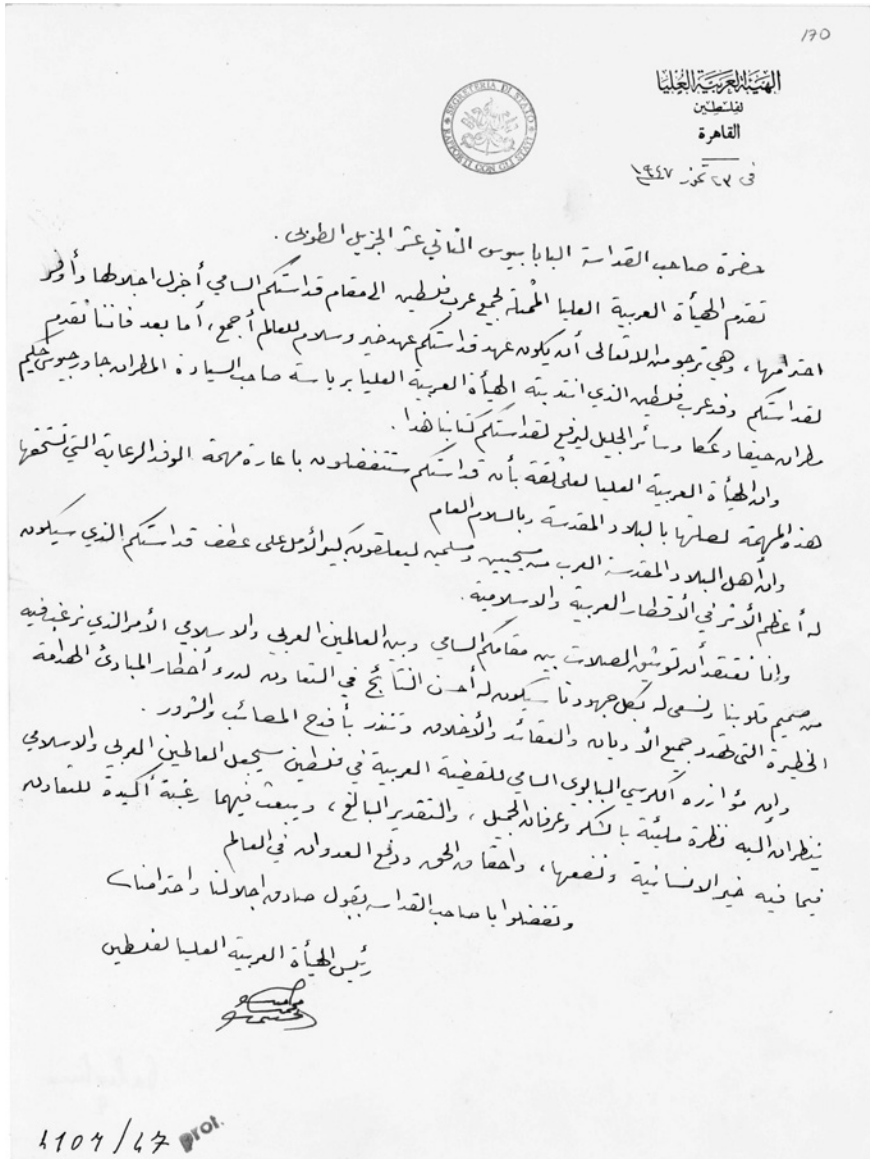 170
الهيئة العربية العليا
لفلسطين
القاهرة
SEGRETERIA DI STATO RAPPORTI CON GLI STATI
في ٢٣ تموز ١٩٤٧
حضرة صاحب القداسة البابا بيوس الثاني عشر الجزيل الطوبى.
تقدم الهيأة العربية العليا الممثلة لجميع عرب فلسطين الى مقام قداستكم السامي أجزل اجلالها وأوفر
احترامها، وهي ترجو من الله تعالى أن يكون عهد قداستكم عهد خير وسلام للعالم أجمع، أما بعد فاننا نقدم
لقداستكم وفد عرب فلسطين الذي انتدبته الهيأة العربية العليا برياسة صاحب السيادة المطران جاورجيوس حكيم
مطران حيفا وعكا وسائر الجليل ليرفع لقداستكم كتابنا هذا.
وان الهيأة العربية العليا لعلى ثقة بأن قداستكم ستتفضلون باعارة مهمة الوفد الرعاية التي تستحقها
هذه المهمة لصلتها بالبلاد المقدسة وبالسلام العام
وان أهل البلاد المقدسة العرب من مسيحيين ومسلمين ليعلقون كبير الأمل على عطف قداستكم الذي سيكون
له أعظم الأثر في الأقطار العربية والاسلامية.
وإنا نعتقد أن توثيق الصلات بين مقامكم السامي وبين العالمين العربي والاسلامي الأمر الذي نرغب فيه
من صميم قلوبنا ونسعى له بكل جهودنا سيكون له أحسن النتائج في التعاون لدرء أخطار المبادئ الهدامة
الخطيرة التي تهدد جميع الأديان والعقائد والأخلاق وتنذر بأفدح المصائب والشرور.
وان مؤازره الكرسي البابوي السامي للقضية العربية في فلسطين سيجعل العالمين العربي والاسلامي
ينظران اليه نظرة مليئة بالشكر وعرفان الجميل، والتقدير البالغ، ويبعث فيهما رغبة أكيدة للتعاون
فيما فيه خير الانسانية ونفعها، واحقاق الحق ودفع العدوان في العالم
وتفضلوا يا صاحب القداسه بقبول صادق اجلالنا واحترامنا
رئيس الهيأة العربية العليا لفلسطين
4104/47 prot.